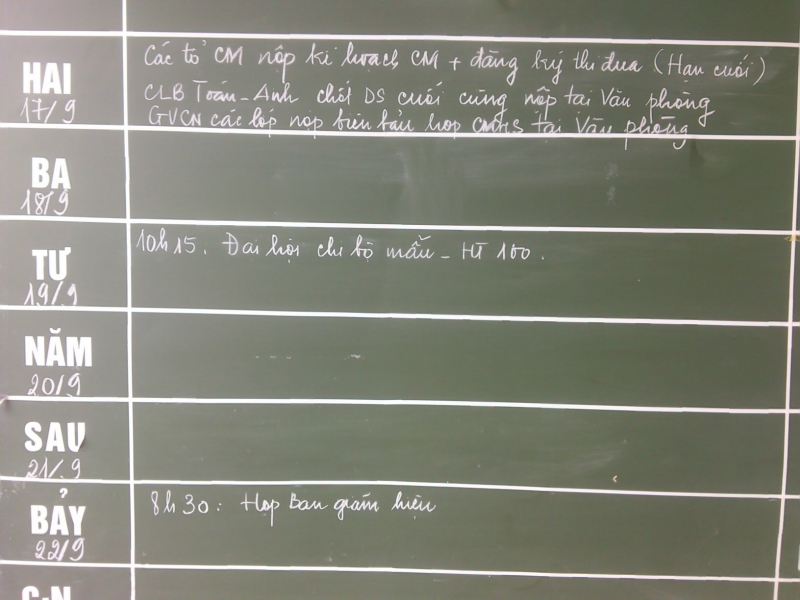 HAI
17/9
Các tổ CM nộp kế hoạch CM + đăng ký thi đua (Hạn cuối)
CLB Toán - Anh chốt DS cuối cùng nộp tại Văn phòng
GVCN các lớp nộp biên bản họp CMHS tại Văn phòng
BA
18/9
TƯ
19/9
10h15. Đại hội chi bộ mẫu - HT 100.
NĂM
20/9
SAU
21/9
BẢY
22/9
8h30: Họp Ban giám hiệu
C:N